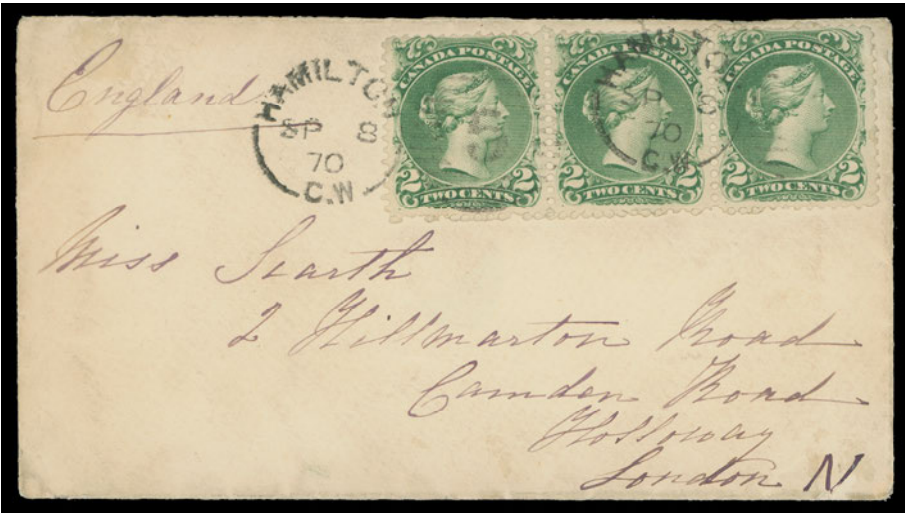 England
HAMILTON
SP 8
70
C.W
CANADA POSTAGE
2 TWO CENTS 2
CANADA POSTAGE
2 TWO CENTS 2
HAMILTON
SP 8
70
C.W
CANADA POSTAGE
2 TWO CENTS 2
Miss Scarth
2 Hillmarton Road
Camden Road
Holloway
London N